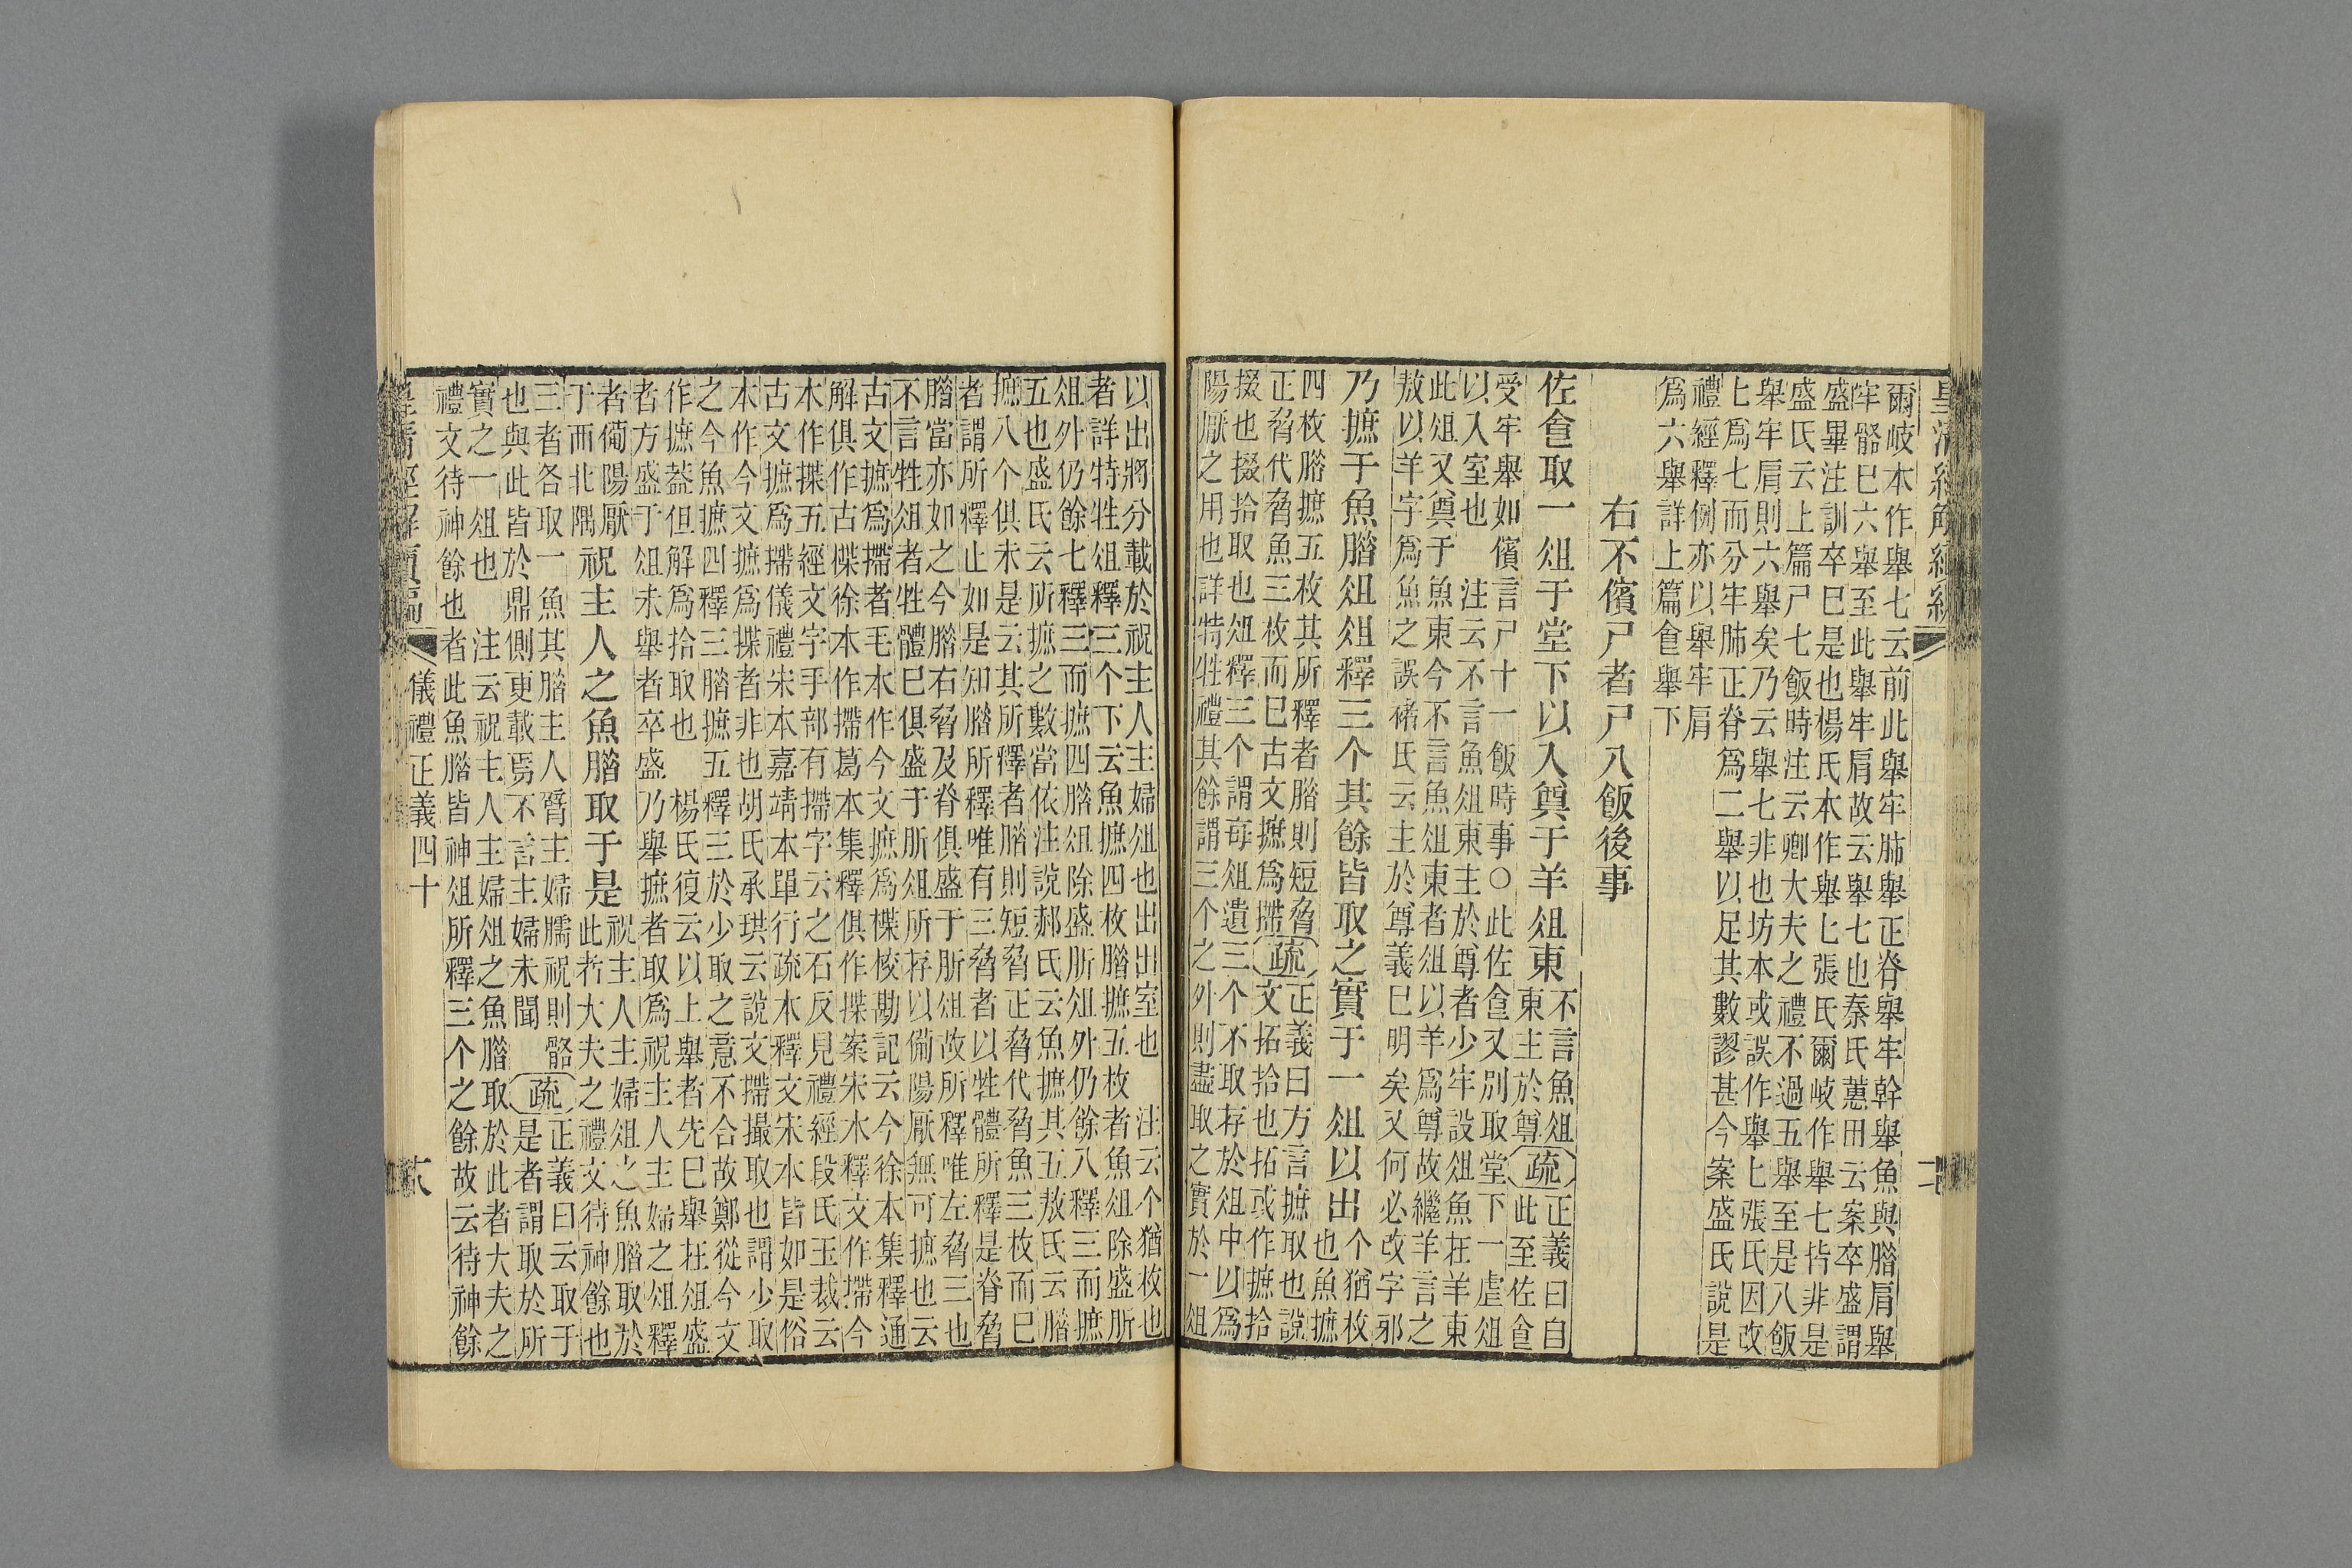 皇清經解續編
爾岐本作舉七云前此舉牢肺舉正脊舉牢幹舉魚與腊肩舉
牢骼巳六舉至此舉牢肩故云舉七也秦氏蕙田云案卒盛謂
盛畢注訓卒巳是也楊氏本作舉七張氏爾岐作舉七皆非是
盛氏云上篇尸七飯時注云卿大夫之禮不過五舉至是八飯
舉牢肩則六舉矣乃云舉七非也坊本或誤作舉七張氏因改
七爲七而分牢肺正脊爲二舉以足其數謬甚今案盛氏說是
禮經釋例亦以舉牢肩
爲六舉詳上篇食舉下
右不儐尸者尸八飯後事
佐食取一俎于堂下以入奠于羊俎東
不言魚俎
東主於尊
疏
正義曰自
此至佐食
受牢舉如儐言尸十一飯時事○此佐食又別取堂下一虛俎
以入室也　注云不言魚俎東主於尊者少牢設俎魚在羊東
此俎又奠于魚東今不言魚俎東者俎以羊爲尊故繼羊言之
敖以羊字爲魚之誤褚氏云主於尊義巳明矣又何必改字邪
乃摭于魚腊俎俎釋三个其餘皆取之實于一俎以出
个猶枚
也魚摭
四枚腊摭五枚其所釋者腊則短脅
正脅代脅魚三枚而巳古文摭爲摕
疏
正義曰方言摭取也說
文拓拾也拓或作摭拾
掇也掇拾取也俎釋三个謂每俎遺三个不取存於俎中以爲
陽厭之用也詳特牲禮其餘謂三个之外則盡取之實於一俎
以出將分載於祝主人主婦俎也出出室也　注云个猶枚也
者詳特牲俎釋三个下云魚摭四枚腊摭五枚者魚俎除盛肵
俎外仍餘七釋三而摭四腊俎除盛肵俎外仍餘八釋三而摭
五也盛氏云所摭之數當依注說郝氏云魚摭其五敖氏云腊
摭八个俱未是云其所釋者腊則短脅正脅代脅魚三枚而巳
者謂所釋止如是知腊所釋唯有三脅者以牲體所釋是脊脅
腊當亦如之今腊右脅及脊俱盛于肵俎故所釋唯左脅三也
不言牲俎者牲體巳俱盛于肵俎所存以備陽厭無可摭也云
古文摭爲摕者毛本作今文摭爲楪校勘記云今徐本集釋通
解俱作古楪徐本作摕葛本集釋俱作揲案宋本釋文作摕今
本作揲五經文字手部有摕字云之石反見禮經段氏玉裁云
古文摭爲摕儀禮宋本嘉靖本單行疏本釋文宋本皆如是俗
本作今文摭爲揲者非也胡氏承珙云說文摕撮取也謂少取
之今魚摭四釋三腊摭五釋三於少取之意不合故鄭從今文
作摭葢但解爲拾取也　楊氏復云以上舉者先巳舉在俎盛
者方盛于俎未舉者卒盛乃舉摭者取爲祝主人主婦之俎釋
者備陽厭
于西北隅
祝主人之魚腊取于是
祝主人主婦俎之魚腊取於
此者大夫之禮文待神餘也
三者各取一魚其腊主人臂主婦臑祝則骼
也與此皆於鼎側更載焉不言主婦未聞
疏
正義曰云取于
是者謂取於所
實之一俎也　注云祝主人主婦俎之魚腊取於此者大夫之
禮文待神餘也者此魚腊皆神俎所釋三个之餘故云待神餘
皇清經解續編
儀禮正義四十